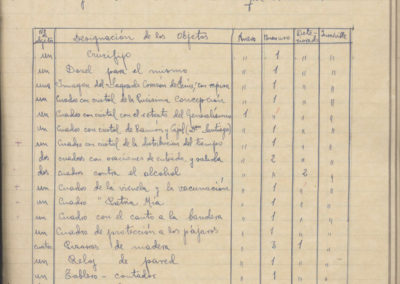 Nº de objetos Designación de los Objetos Nuevo Buen uso Dete-riorado Inservible
un Crucifijo " 1 " "
un Dosel para el mismo " 1 " "
una Imagen del Sagrado Corazón de Jesús, con repisa " 1 " "
un Cuadro con cristal de la Purísima Concepción " 1 " "
un Cuadro con cristal con el retrato del Generalísimo 1 " " "
un Cuadro con cristal de Ramón y Cajal (Dn Santiago) " 1 " "
un Cuadro con cristal de la distribución del tiempo " 1 " "
dos cuadros con oraciones de entrada y salida " 2 " "
dos cuadros contra el alcohol " " 2 "
un Cuadro de la viruela y la vacunación " 1 " "
un Cuadro "Patria Mía " 1 " "
un Cuadro con el canto a la bandera " 1 " "
un Cuadro de protección a los pájaros " 1 " "
cuatro Pizarras de madera " 3 1 "
un Reloj de pared " 1 " "
un Tablero-contador " 1 " "